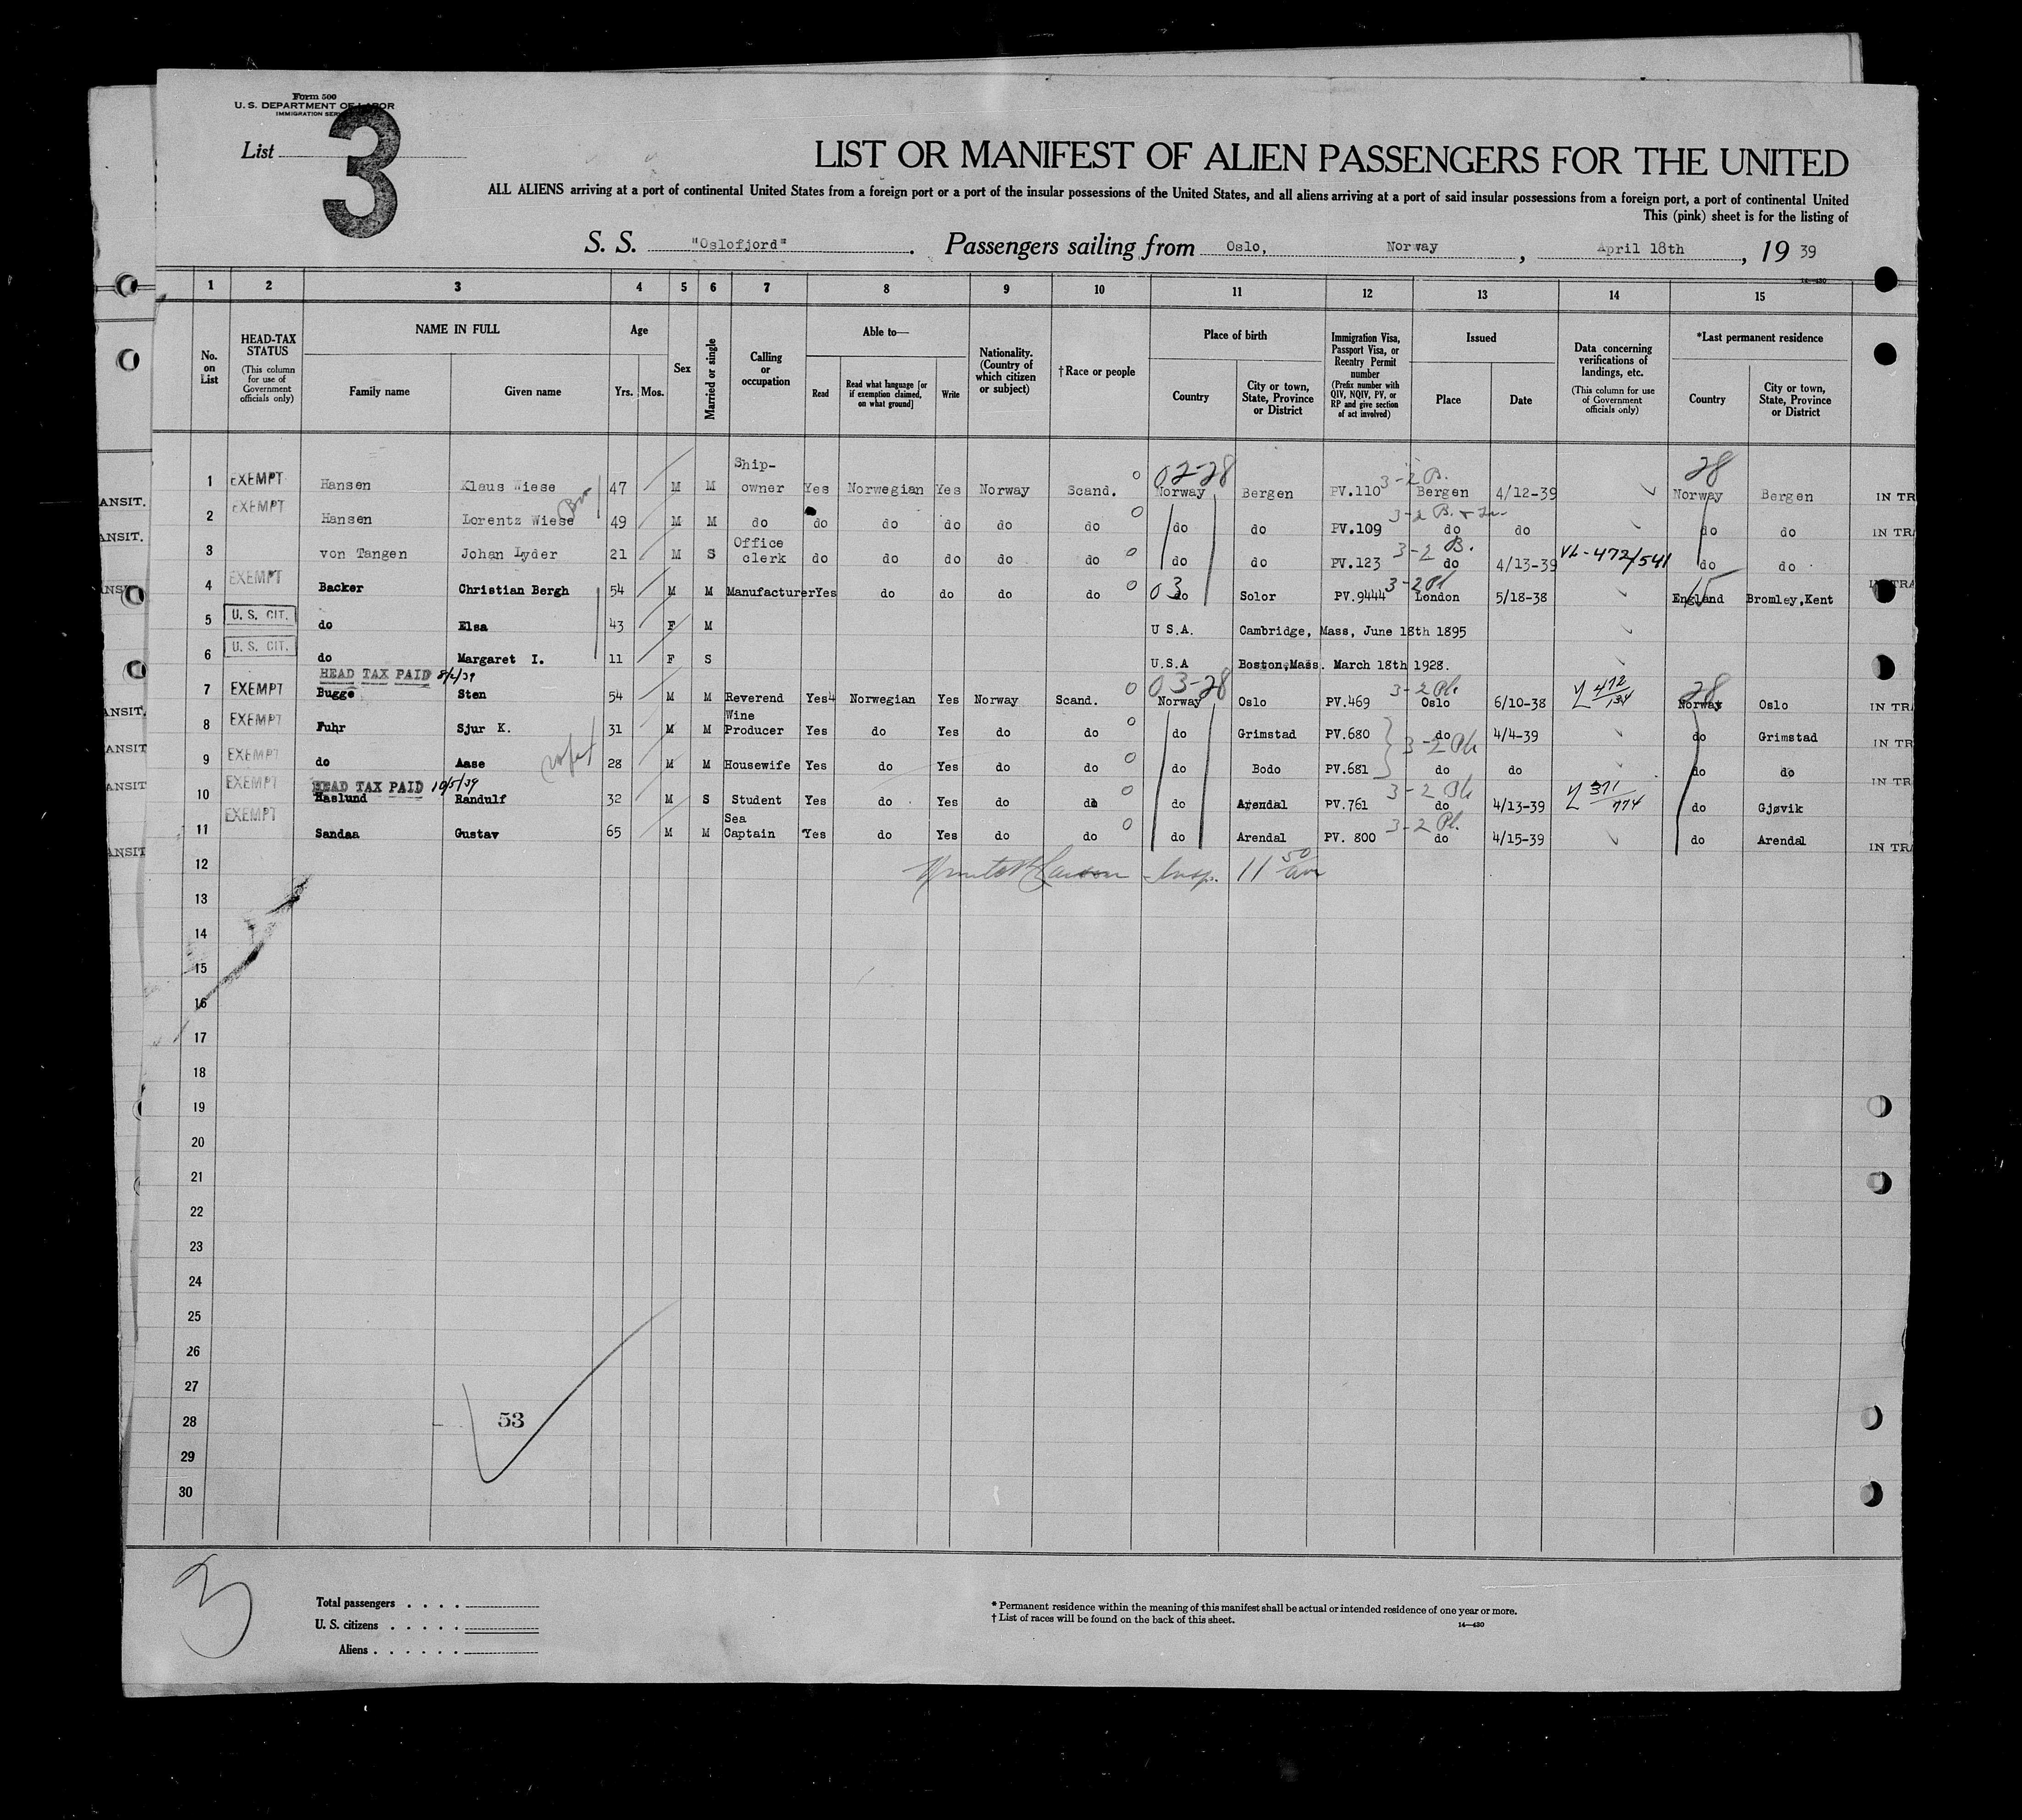 Form 500
U. S. DEPARTMENT OF LABOR
IMMIGRATION SER
List 3
LIST OR MANIFEST OF ALIEN PASSENGERS FOR THE UNITED
ALL ALIENS arriving at a port of continental United States from a foreign port or a port of the insular possessions of the United States, and all aliens arriving at a port of said insular possessions from a foreign port, a port of continental United
This (pink) sheet is for the listing of
S. S. "Oslofjord" . Passengers sailing from Oslo, Norway , April 18th , 19 39
14—430
1 2 3 4 5 6 7 8 9 10 11 12 13 14 15
No. on List
HEAD-TAX STATUS (This column for use of Government officials only)
NAME IN FULL
Family name Given name
Age
Yrs. Mos.
Sex
Married or single
Calling or occupation
Able to—
Read Read what language [or if exemption claimed, on what ground] Write
Nationality. (Country of which citizen or subject)
†Race or people
Place of birth
Country City or town, State, Province or District
Immigration Visa, Passport Visa, or Reentry Permit number (Prefix number with QIV, NQIV, PV, or RP and give section of act involved)
Issued
Place Date
Data concerning verifications of landings, etc. (This column for use of Government officials only)
*Last permanent residence
Country City or town, State, Province or District
02-28 3-2 B. 28
1 EXEMPT Hansen Klaus Wiese 47 M M Ship-owner Yes Norwegian Yes Norway Scand. 0 Norway Bergen PV.110 Bergen 4/12-39 Norway Bergen IN TR
ANSIT.
2 EXEMPT Hansen Lorentz Wiese 49 M M do do do do do do 0 do do PV.109 3-2 B. do do do do IN TRA
ANSIT.
3 von Tangen Johan Lyder 21 M S Office clerk do do do do do 0 do do PV.123 3-2 B. do 4/13-39 VL-472/541 do do
4 EXEMPT Backer Christian Bergh 54 M M Manufacturer Yes do do do do 0 03 do Solor PV.9444 3-2 Pl London 5/18-38 15 England Bromley,Kent
5 U. S. CIT. do Elsa 43 F M U S.A. Cambridge, Mass, June 18th 1895
6 U. S. CIT. do Margaret I. 11 F S U.S.A Boston,Mass. March 18th 1928.
HEAD TAX PAID 8/2/39 03-28 28
7 EXEMPT Bugge Sten 54 M M Reverend Yes4 Norwegian Yes Norway Scand. 0 Norway Oslo PV.469 3-2 Pl. Oslo 6/10-38 472/134 Norway Oslo IN TRA
ANSIT.
8 EXEMPT Fuhr Sjur K. 31 M M Wine Producer Yes do Yes do do 0 do Grimstad PV.680 do 4/4-39 do Grimstad IN TR
ANSIT
9 EXEMPT do Aase 28 M M Housewife Yes do Yes do do 0 do Bodo PV.681 3-2 Pl do do do do IN TR
ANSIT
HEAD TAX PAID 10/5/39
10 EXEMPT Haslund Randulf 32 M S Student Yes do Yes do do 0 do Arendal PV.761 3-2 Pl do 4/13-39 371/774 do Gjøvik
11 EXEMPT Sandaa Gustav 65 M M Sea Captain Yes do Yes do do 0 do Arendal PV. 800 3-2 Pl. do 4/15-39 do Arendal IN TRA
ANSIT
12 Insp. 11 50 am
13
14
15
16
17
18
19
20
21
22
23
24
25
26
27
28 53
29
30
3
Total passengers . . . .
U. S. citizens . . . . .
Aliens . . . . . .
* Permanent residence within the meaning of this manifest shall be actual or intended residence of one year or more.
† List of races will be found on the back of this sheet.
14—430